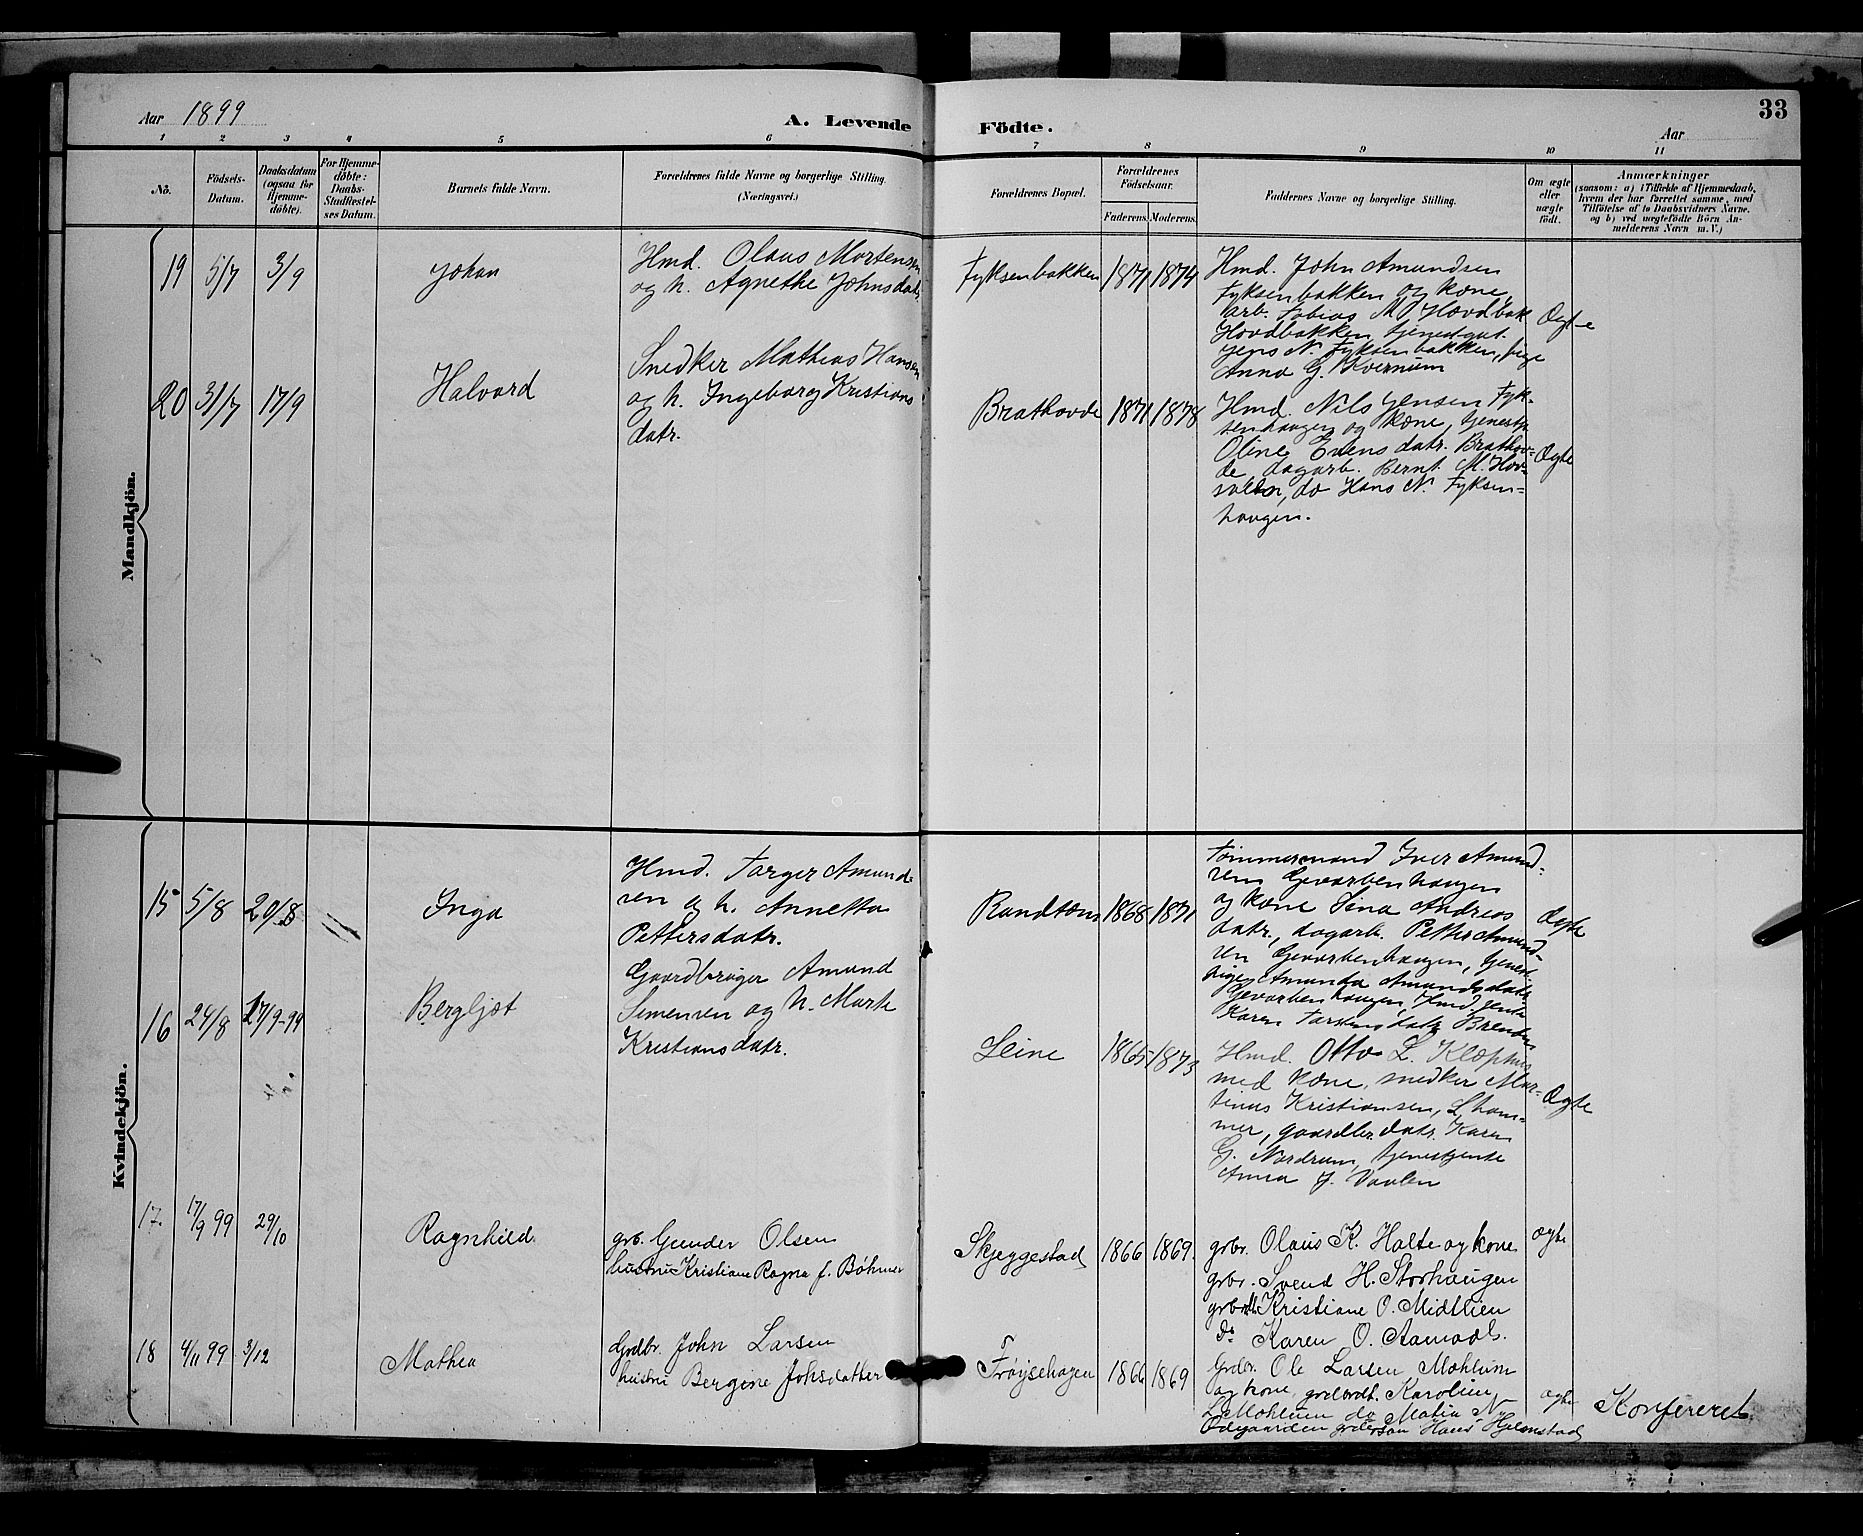 Aar 1899
A. Levende Födte.
Aar
33
1 2 3 4 5 6 7 8 9 10 11
No.
Födsels-
Datum.
Daabsdatum
(ogsaa for
Hjemme-
döbte).
For Hjemme-
döbte:
Daabs-
Stadfæstel-
ses Datum.
Barnets fulde Navn.
Forældrenes fulde Navne og borgerlige Stilling.
(Næringsvei.)
Forældrenes Bopæl.
Forældrenes
Födselsaar.
Faderens. Moderens.
Faddernes Navne og borgerlige Stilling.
Om ægte
eller
uægte
födt.
Anmærkninger
(saasom: a) i Tilfælde af Hjemmedaab,
hvem der har forrettet samme, med
Tilföielse af to Daabsvidners Navne,
og b) ved uægtefödte Börn An-
melderens Navn m. V.)
Mandkjön.
19 5/7 3/9 Johan
Hmd. Olaus Mortensen
og h. Agnethe Johnsdatr.
Fyksenbakken 1871 1874
Hmd. John Amundsen
Fyksenbakken og kone,
arb. Tobias M. Hovdbak
Hovdbakken, tjenestgut
Jens N. Fyksenbakken, pige
Anna G. Kvernum
Ægte
20 31/7 17/9 Halvard
Snedker Mathias Hansen
og h. Ingeborg Kristians
datr.
Brathovde 1871 1878
Hmd. Nils Jensen Fyk-
senhaugen og kone, tjenestp.
Oline Evensdatr. Brathov-
de, dagarb. Bernt M. Hov-
, do Hans N. Fyksen-
haugen.
Ægte
Kvindekjön.
15 5/8 20/8 Inga
Hmd. Torger Amund-
sen og h. Annetta
Pettersdatr.
Randtøns 1868 1871
Tømmermand Iver Amund-
sen Gevarbenhaugen
og kone Sina Andreas
datr., dagarb. Petter Amund-
sen Gevarbenhaugen, tjenest-
pige Amanda Amundsdatr.
Gevarbenhaugen, Hmd. jente
Karen Torstensdatr. Brenden
Ægte
16 24/8 17/9-99 Bergljot
Gaardbruger Amund
Simensen og h. Marth
Kristiansdatr.
Seine 1865 1873
Hmd. Otto L. Kløphus
med kone, snedker Mar-
tinus Kristiansen, L.ham-
mer, gaardbr. datr. Karen
G. Nordrum, tjenestjente
Anna J. Vaalen
Ægte
17. 17/9 99 29/10 Ragnhild.
grb. Gunder Olsen
hustru Kristiane Ragna f. Bøhmer
Skjeggestad 1866 1869.
grbr. Olaus K. Holte og kone
grbr. Svend H. Storhaugen
grbrdt. Kristiane O. Midtlien
Do Karen O. Aamodt.
ægte
18 4/11 99 3/12 Mathea
Grdbr. John Larsen
hustru Bergine Johsdatter
Frøysehagen 1866 1869
Grdbr. Ole Larsen Mæhlum
og kone, grdbrdt. Karoline
L. Mæhlum do Matia N.
Ødegaarden grdbrsøn Hans Hjelmstad
ægte
Konfereret